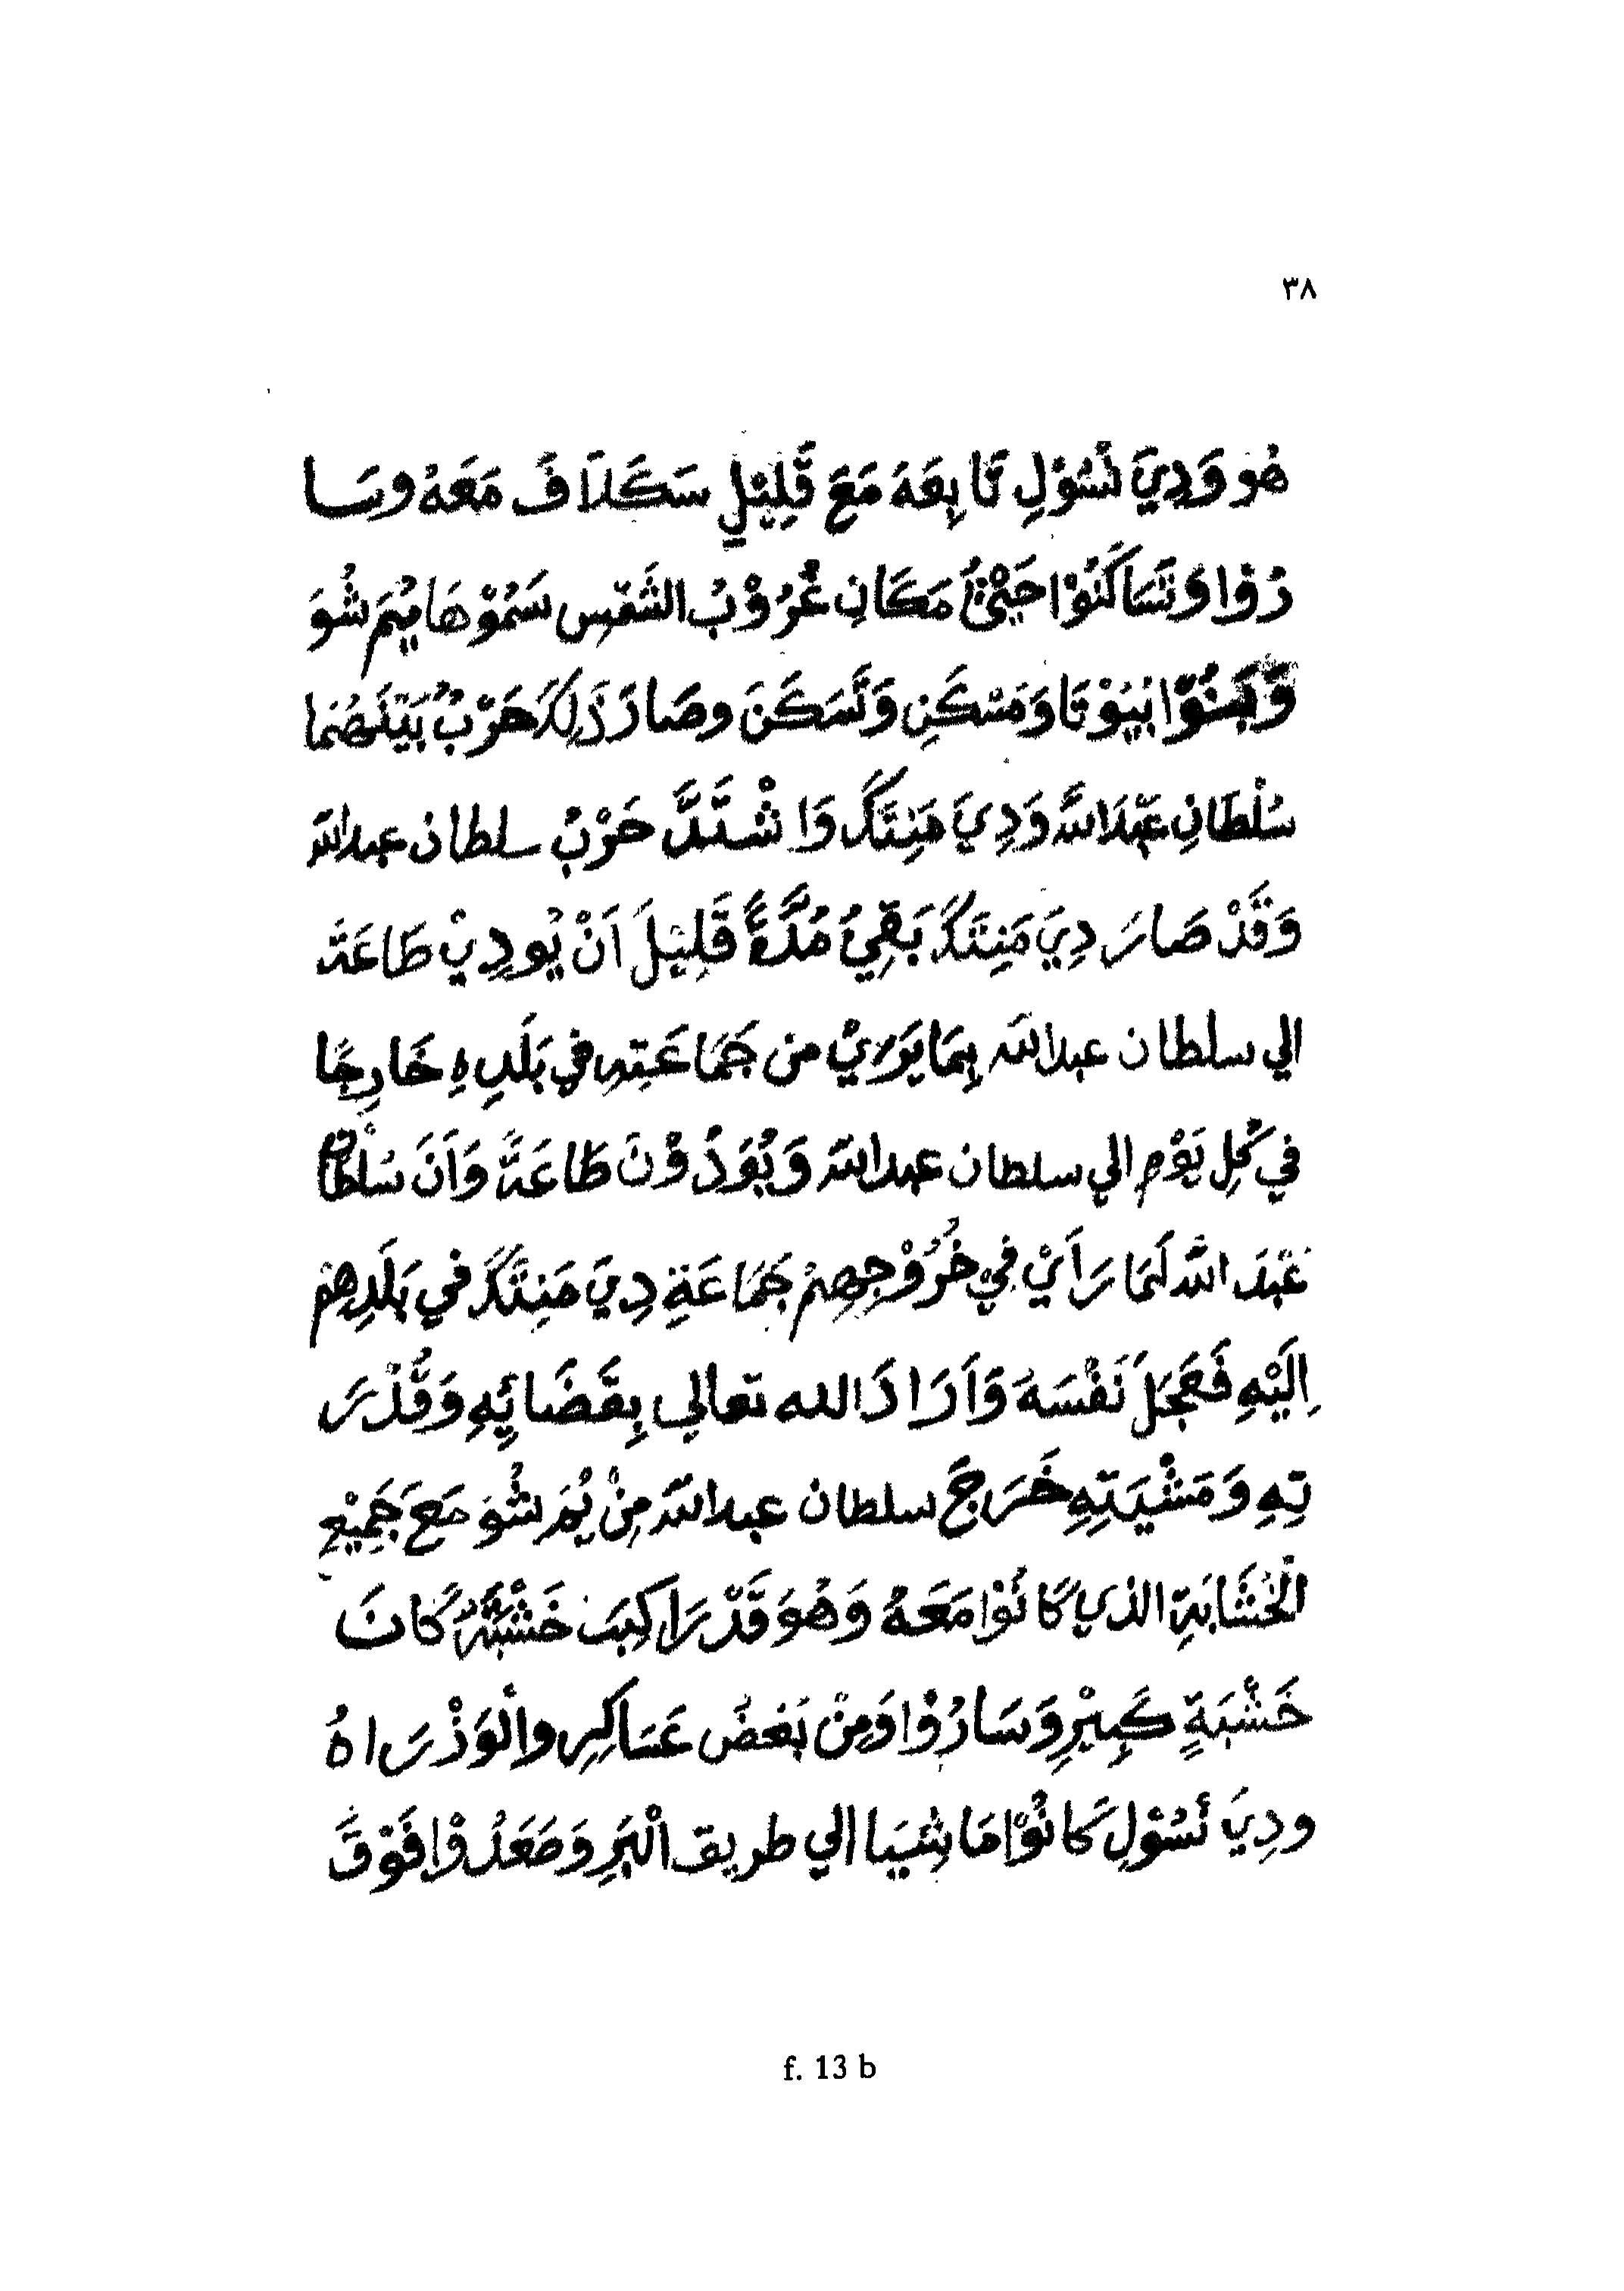 ٣٨
هُو وَدِيَ نَسُوْلِ تَابِعَهَ مَعَ قَلِيْلٍ سَكَلَافَ مَعَهُ وسَا
رُوْا وَتَسَاكَنُوْا حَتّىٰ مَكَانِ غُرُوْبُ الشَّمْسِ سَمُوْهَا مِيُمَ شُوَ
وَبَنُوْا بُيُوْتَا وَمَسْكَنِ وَتَسَكَنَ وصَارَ ذَلِكَ حَرْبٌ بَيْنَهُمَا
سُلْطَانِ عَبْدَاللّٰه وَدِيَ مَنِتَكَ وَاشْتَدَّ حَرْبُ سلطان عبدالله
وَقَدْ صَارَ دِيَ مَنِتَكَ بَقِيَ مُدَّةً قَلِيْلَ اَنْ يُودِيْ طَاعَةَ
الي سلطان عبدالله بِمَا يَرَيْ من جَمَاعَتِهِ في بَلَدِهِ خَارِجًا
في كُلِ يَوْمِ الي سلطان عبدالله وَيُوَدُّوْنَ طَاعَةَ وَاَنَ سُلْطَان
عَبْدَ اللّٰه لَمَا رَاَيْ فِيْ خُرُوْجِهِمْ جَمَاعَةِ دِيَ مَنِتَكَ في بَلَدِهِمْ
اِلَيْهِ فَعَجَلَ نَفْسَهَ وَاَرَادَ الله تعالي بِقَضَائِهِ وَقُدْرَ
تِهِ وَمَشْيَتِهِ خَرَجَ سلطان عبدالله مِنْ يُمَ شُوَ مَعَ جَمِيْعِ
الْخَشَابَةِ الذي كَانُوْا مَعَهُ وَهُوَ قَدْ رَاكِبَ خَشْبَةً كَانَ
خَشْبَةٍ كَبِيْرِ وَسَارُوْا وَمِنْ بَعْضُ عَسَاكِرِ والْوَزْرَاهُ
ودِيَ نَسُوْلِ كَانُوْا مَاشِيَا الي طريق الْبَرِ وَصَعَدُوْا فَوْقَ
f. 13 b